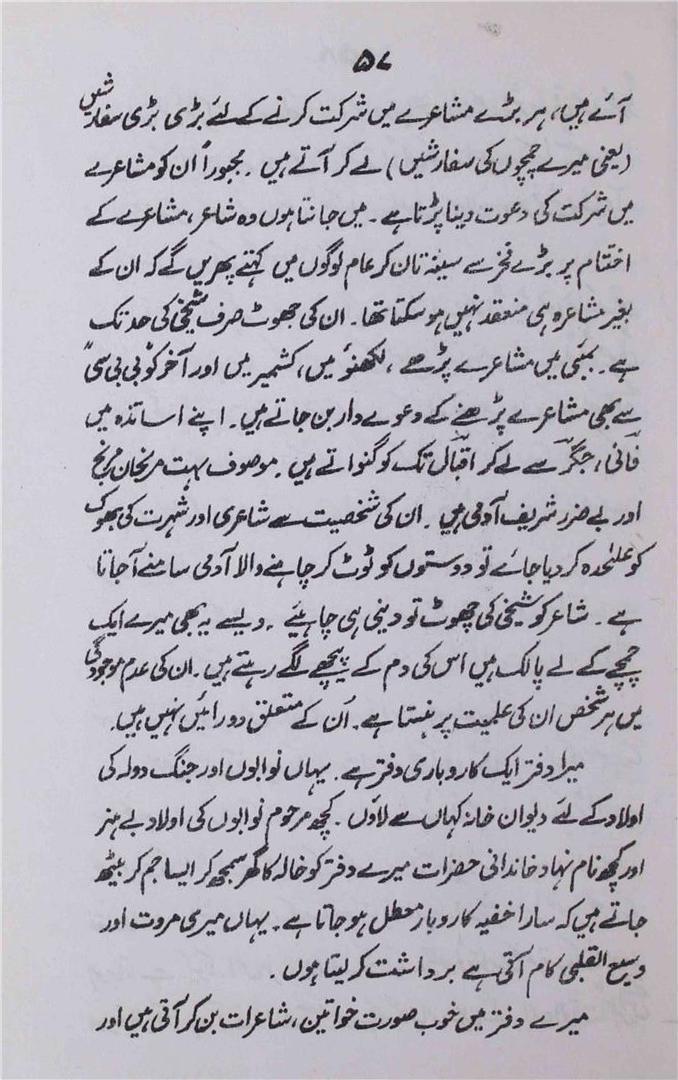 ۵۷
آئے ہیں، ہر بڑے مشاعرے میں شرکت کرنے کے لئے بڑی بڑی سفارشیں
(یعنی میرے چمچوں کی سفارشیں) لے کر آتے ہیں۔ مجبوراً ان کو مشاعرے
میں شرکت کی دعوت دینا پڑتا ہے۔ میں جانتا ہوں وہ شاعر، مشاعرے کے
اختتام پر بڑے فخر سے سینہ تان کر عام لوگوں میں کہتے پھریں گے کہ ان کے
بغیر مشاعرہ ہی منعقد نہیں ہو سکتا تھا۔ ان کی جھوٹ صرف شیخی کی حد تک
ہے۔ بمبئی میں مشاعرے پڑھے، لکھنؤ میں، کشمیر میں اور آخر کو "بی بی سی"
سے بھی مشاعرے پڑھنے کے دعوے دار بن جاتے ہیں۔ اپنے اساتذہ میں
فانی، جگر سے لے کر اقبال تک کو گنواتے ہیں۔ موصوف بہت مرنجان مرنج
اور بے ضرر شریف آدمی ہیں۔ ان کی شخصیت سے شاعری اور شہرت کی بھوک
کو علٰحدہ کر دیا جائے تو دوستوں کو ٹوٹ کر چاہنے والا آدمی سامنے آجاتا
ہے۔ شاعر کو شیخی کی چھوٹ تو دینی ہی چاہیئے۔ ویسے یہ بھی میرے ایک
چمچے کے لے پالک ہیں اس کی دم کے پیچھے لگے رہتے ہیں۔ ان کی عدم موجودگی
میں ہر شخص ان کی علمیت پر ہنستا ہے۔ اُن کے متعلق دو رائیں نہیں ہیں۔
میرا دفتر ایک کاروباری دفتر ہے۔ یہاں نوابوں اور جنگ دولہ کی
اولاد کے لئے دیوان خانہ کہاں سے لاؤں۔ کچھ مرحوم نوابوں کی اولاد بے ہنر
اور کچھ نام نہاد خاندانی حضرات میرے دفتر کو خالہ کا گھر سمجھ کر ایسا جم کر بیٹھ
جاتے ہیں کہ سارا خفیہ کاروبار معطل ہو جاتا ہے۔ یہاں میری مروت اور
وسیع القلبی کام آتی ہے برداشت کر لیتا ہوں۔
میرے دفتر میں خوب صورت خواتین، شاعرات بن کر آتی ہیں اور